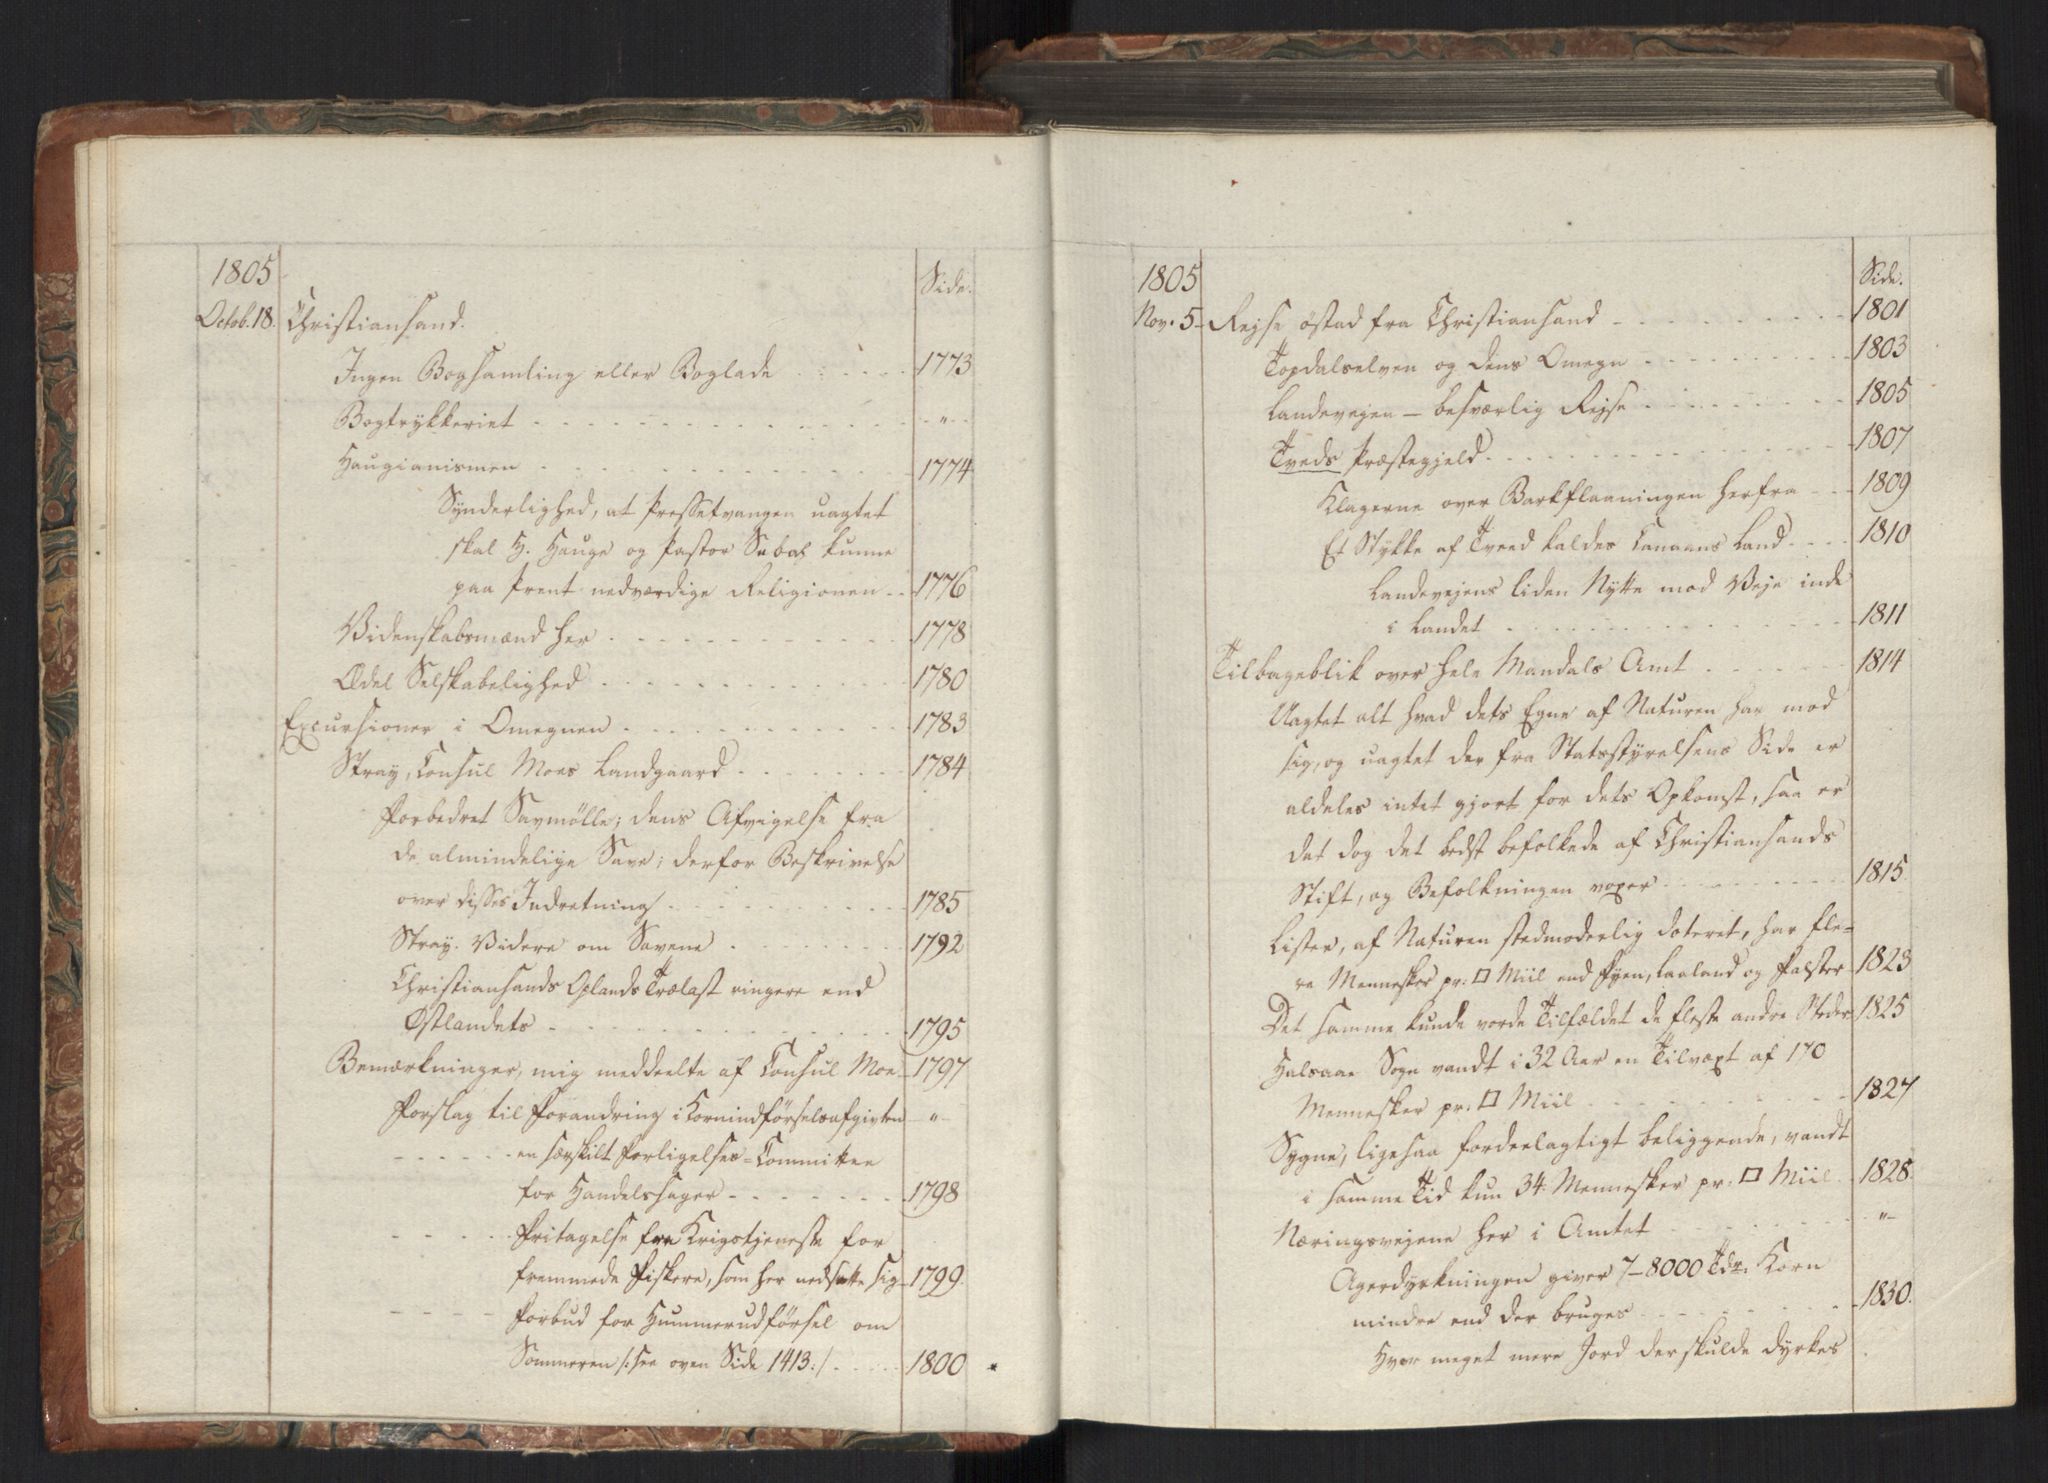 1805
Side.
Octob. 18. Christiansand.
Ingen Bogsamling eller Boglade - - - - - 1773
Bogtrykkeriet - - - - - - - - - - "
Haugianismen - - - - - - - - - - 1774
Synderlighed, at Pressetvangen uagtet
skal H. Hauge og Pastor kunne
paa Prent nedværdige Religionen - - 1776
Videnskabsmænd her - - - - - - - 1778
Ædel Selskabelighed - - - - - - - 1780
Excursioner i Omegnen - - - - - - - 1783
Stray, Consul Moes Landgaard - - - - - 1784
Forbedret Savmölle; dens Afvigelse fra
de almindelige Save; derfor Beskrivelse
over disses Indretning - - - - - - - 1785
Stray. Videre om Savene - - - - - 1792
Christiansands Oplands Trælast ringere end
Østlandets - - - - - - - - - 1795
Bemærkninger, mig meddeelte af Consul Moe - 1797
Forslag til Forandring i Kornindförselsafgivten - "
- - - - - en særskilt Forligelses-Committee
for Handelssager - - - - - - 1798
- - - - - Fritagelse fra Krigstjeneste for
fremmede Fiskere, som her nedsatte sig - 1799.
- - - - Forbud for Hummerudförsel om
Sommeren /: see oven Side 1413 :/ - - - 1800
1805
Side.
Nov. 5 - Rejse östad fra Christiansand - - - - - - 1801
Topdalselven og dens Omegn - - - - - - 1803
Landevejen - besværlig Rejse - - - - - - 1805
Tveds Præstegjeld - - - - - - - - - 1807
Klagerne over Barkflaaningen herfra - - 1809
Et Stykke af Tveed kaldes Canaans Land - - - 1810
Landevejens liden Nytte mod Veje inde
i Landet - - - - - - - - - 1811
Tilbageblik over hele Mandals Amt - - - - - 1814
Uagtet alt hvad dets Egne af Naturen har mod
sig, og uagtet der fra Statsstyrelsens Side er
aldeles intet gjort for dets Opkomst, saa er
det dog det bedst befolkede af Christiansands
Stift, og Befolkningen voxer - - - - - - 1815
Lister, af Naturen stedmoderlig doteret, har fle-
re Mennesker pr: □ Miil end Fyen, Laaland og Falster - 1823
Det samme kunde vorde Tilfældet de fleste andre Steder 1825
Halsaae Sogn vandt i 32 Aar en Tilvæxt af 170
Mennesker pr: □ Miil - - - - - - - 1827
Sygne, ligesaa fordeelagtigt beliggende, vandt
i samme Tid kun 34 Mennesker pr: □ Miil - 1828.
Næringsvejene her i Amtet - - - - - "
Agerdyrkningen giver 7-8000 Tdr. Korn
mindre end der bruges - - - - - - 1830.
Hvor meget mere Jord der skulde dyrkes